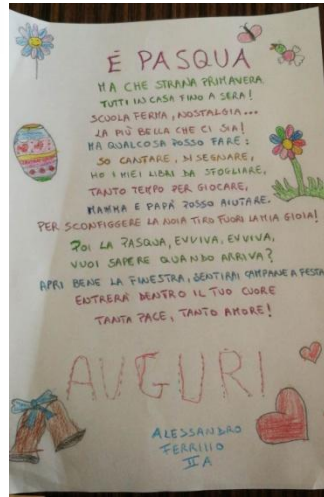 É PASQUA
MA CHE STRANA PRIMAVERA
TUTTI IN CASA FINO A SERA!
SCUOLA FERMA, NOSTALGIA...
LA PIÙ BELLA CHE CI SIA!
MA QUALCOSA POSSO FARE:
SO CANTARE, DISEGNARE,
HO I MIEI LIBRI DA SFOGLIARE,
TANTO TEMPO PER GIOCARE,
MAMMA E PAPÀ POSSO AIUTARE.
PER SCONFIGGERE LA NOIA TIRO FUORI LA MIA GIOIA!
POI LA PASQUA, EVVIVA, EVVIVA,
VUOI SAPERE QUANDO ARRIVA?
APRI BENE LA FINESTRA, SENTIRAI CAMPANE A FESTA
ENTRERÀ DENTRO IL TUO CUORE
TANTA PACE, TANTO AMORE!
AUGURI
ALESSANDRO
FERRIIIO
II A